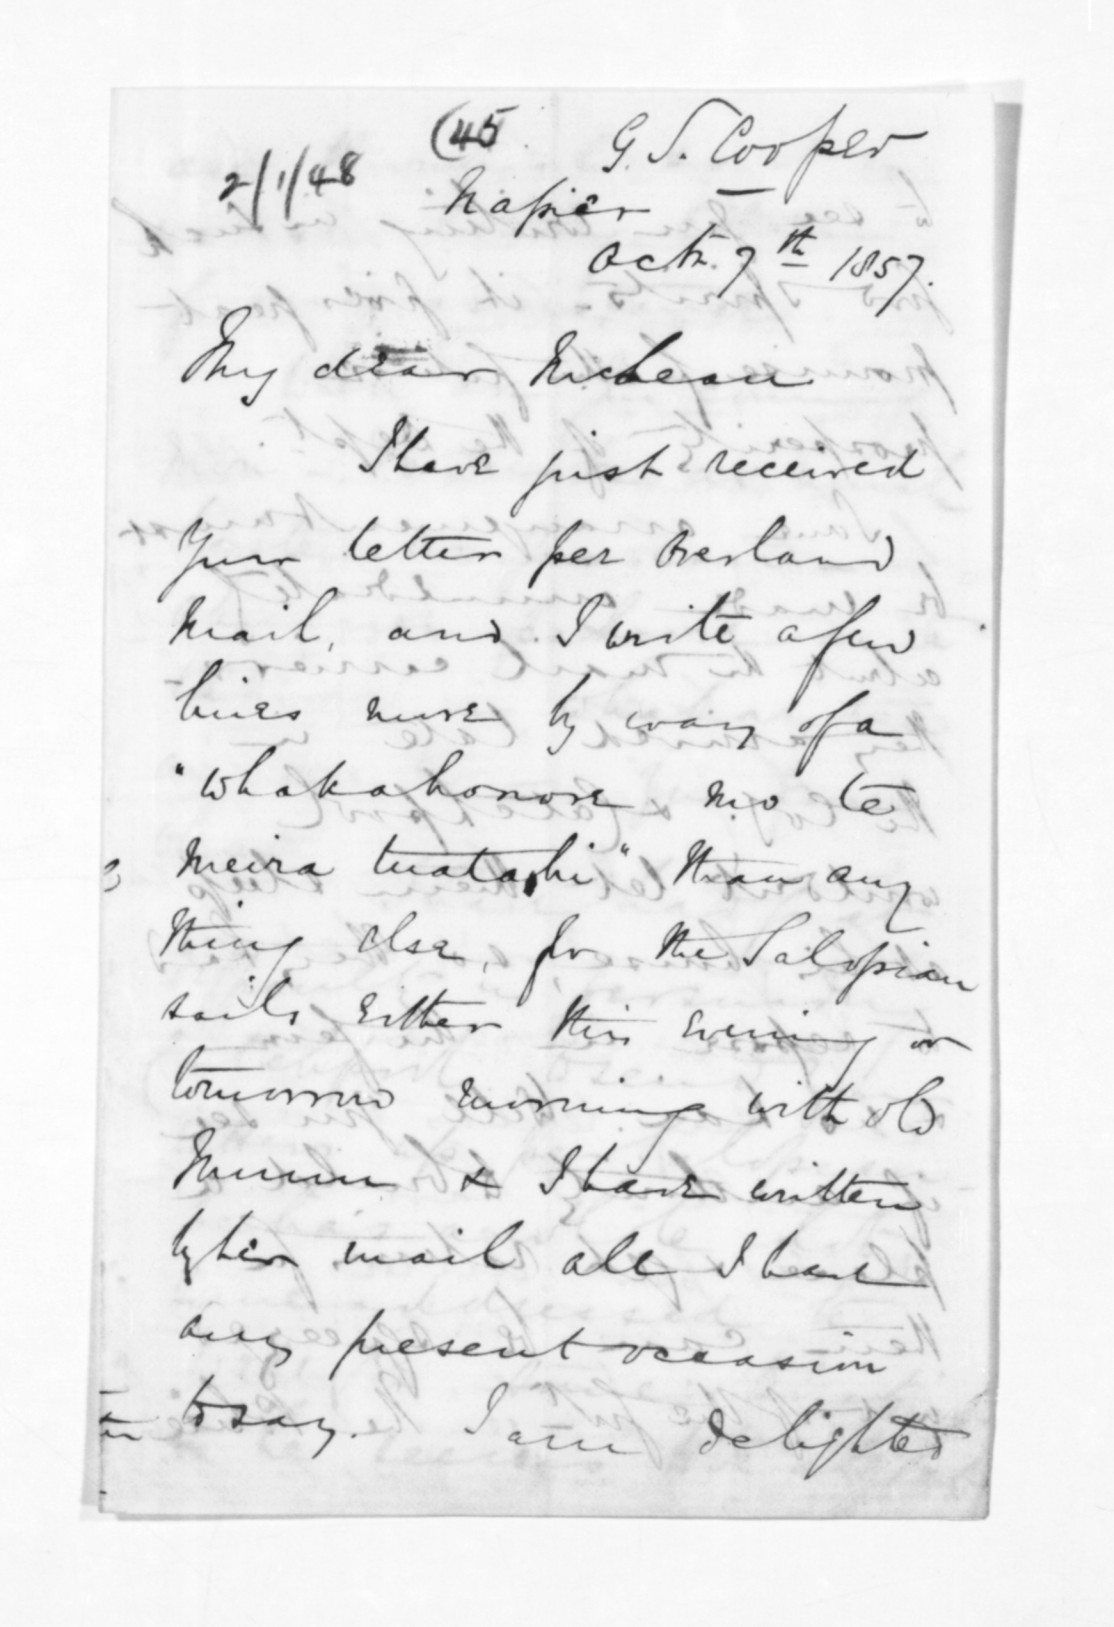 (45
G. S. Cooper
2/1/48
Napier
Octr. 7th 1857.
My dear McLean
I have just received
your letter per Overland
Mail, and I write a few
lines more by way of a
"whakahonore mo te
Meira tuatahi" than any
thing else, for the Salopian
sails either this evening or
tomorrow morning with old
Munn & I have written
by her mail all I have
any present occasion
to say. I am delighted